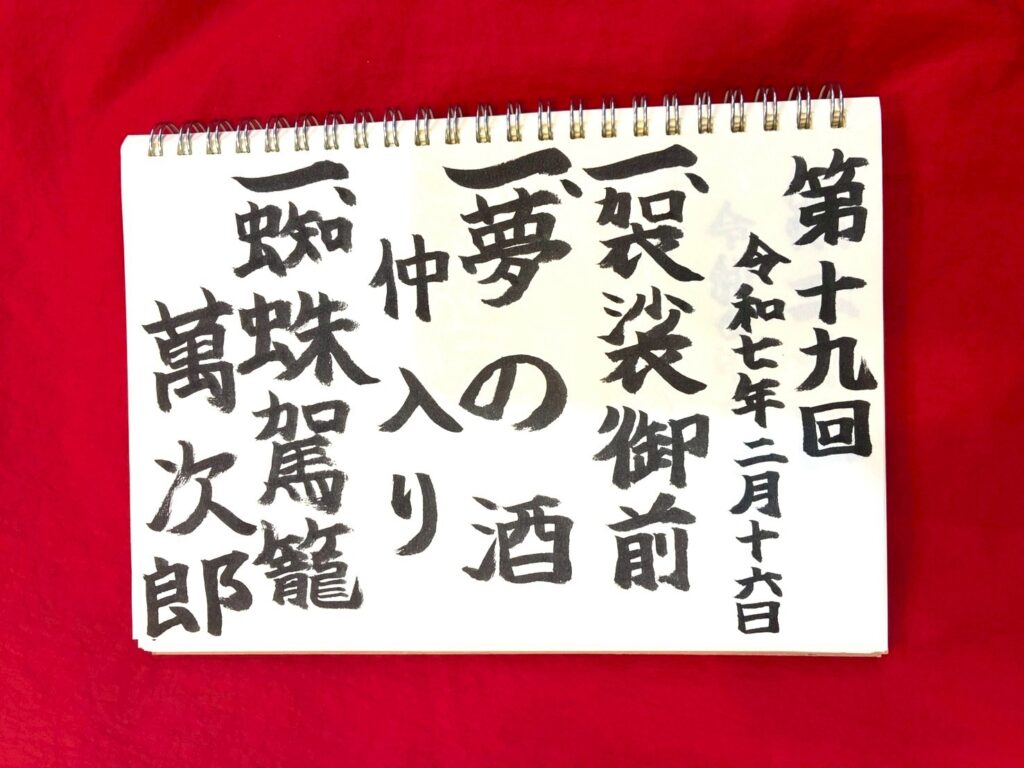 第十九回
令和七年二月十六日
一、袈裟御前
一、夢の酒
仲入り
一、蜘蛛駕籠
萬次郎